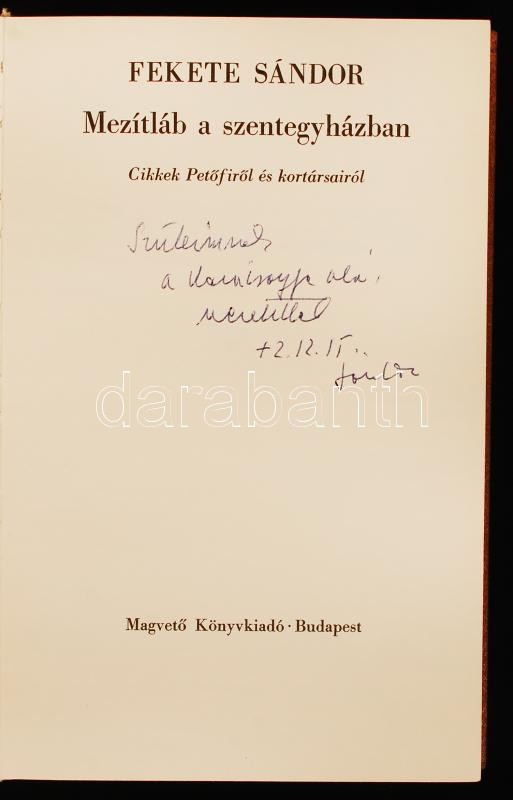 FEKETE SÁNDOR
Mezítláb a szentegyházban
Cikkek Petőfiről és kortársairól
Szüleimnek
a Karácsonyfa alá,
szeretettel
72.12.15.
Sándor
darabanth
Magvető Könyvkiadó · Budapest